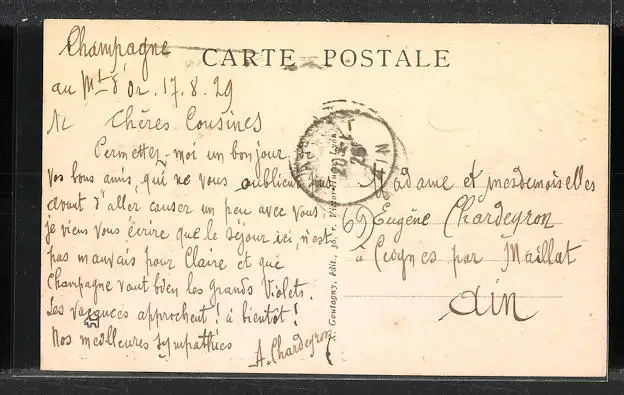 CARTE POSTALE
Champagne
au Mt d'Or. 17.8.29
Chères Cousines
Permettez-moi un bonjour
vos bons amis, qui ne vous oublient pas
avant d'aller causer un peu avec vous
je viens vous écrire que le séjour ici, n'est
pas mauvais pour Claire et que
Champagne vaut bien les Grands Violets.
Les vacances approchent! à bientôt!
Nos meilleures sympathies
A. Chardeyron
Madame et mesdemoiselles
Eugène Chardeyron
à Ceignes par Maillat
Ain
Goutagny, édit,